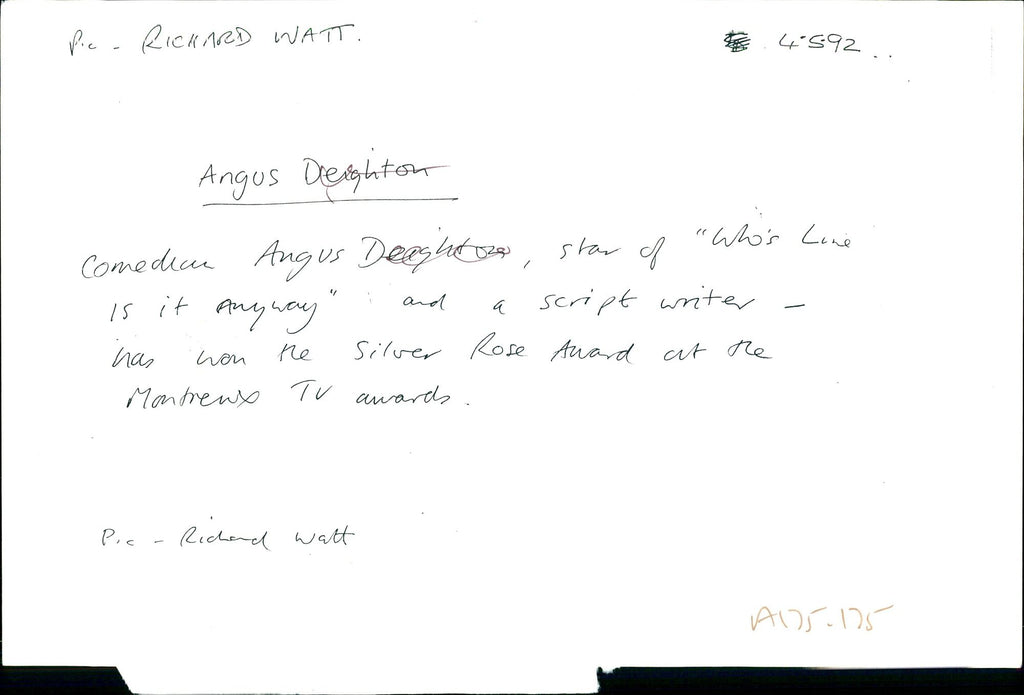 Pic - RICHARD WATT. 4.5.92
Angus Deighton
Comedian Angus Deighton, star of "Who's Line
is it Anyway" and a script writer -
has won the Silver Rose Award at the
Montreux TV awards.
Pic - Richard Watt
A175-175